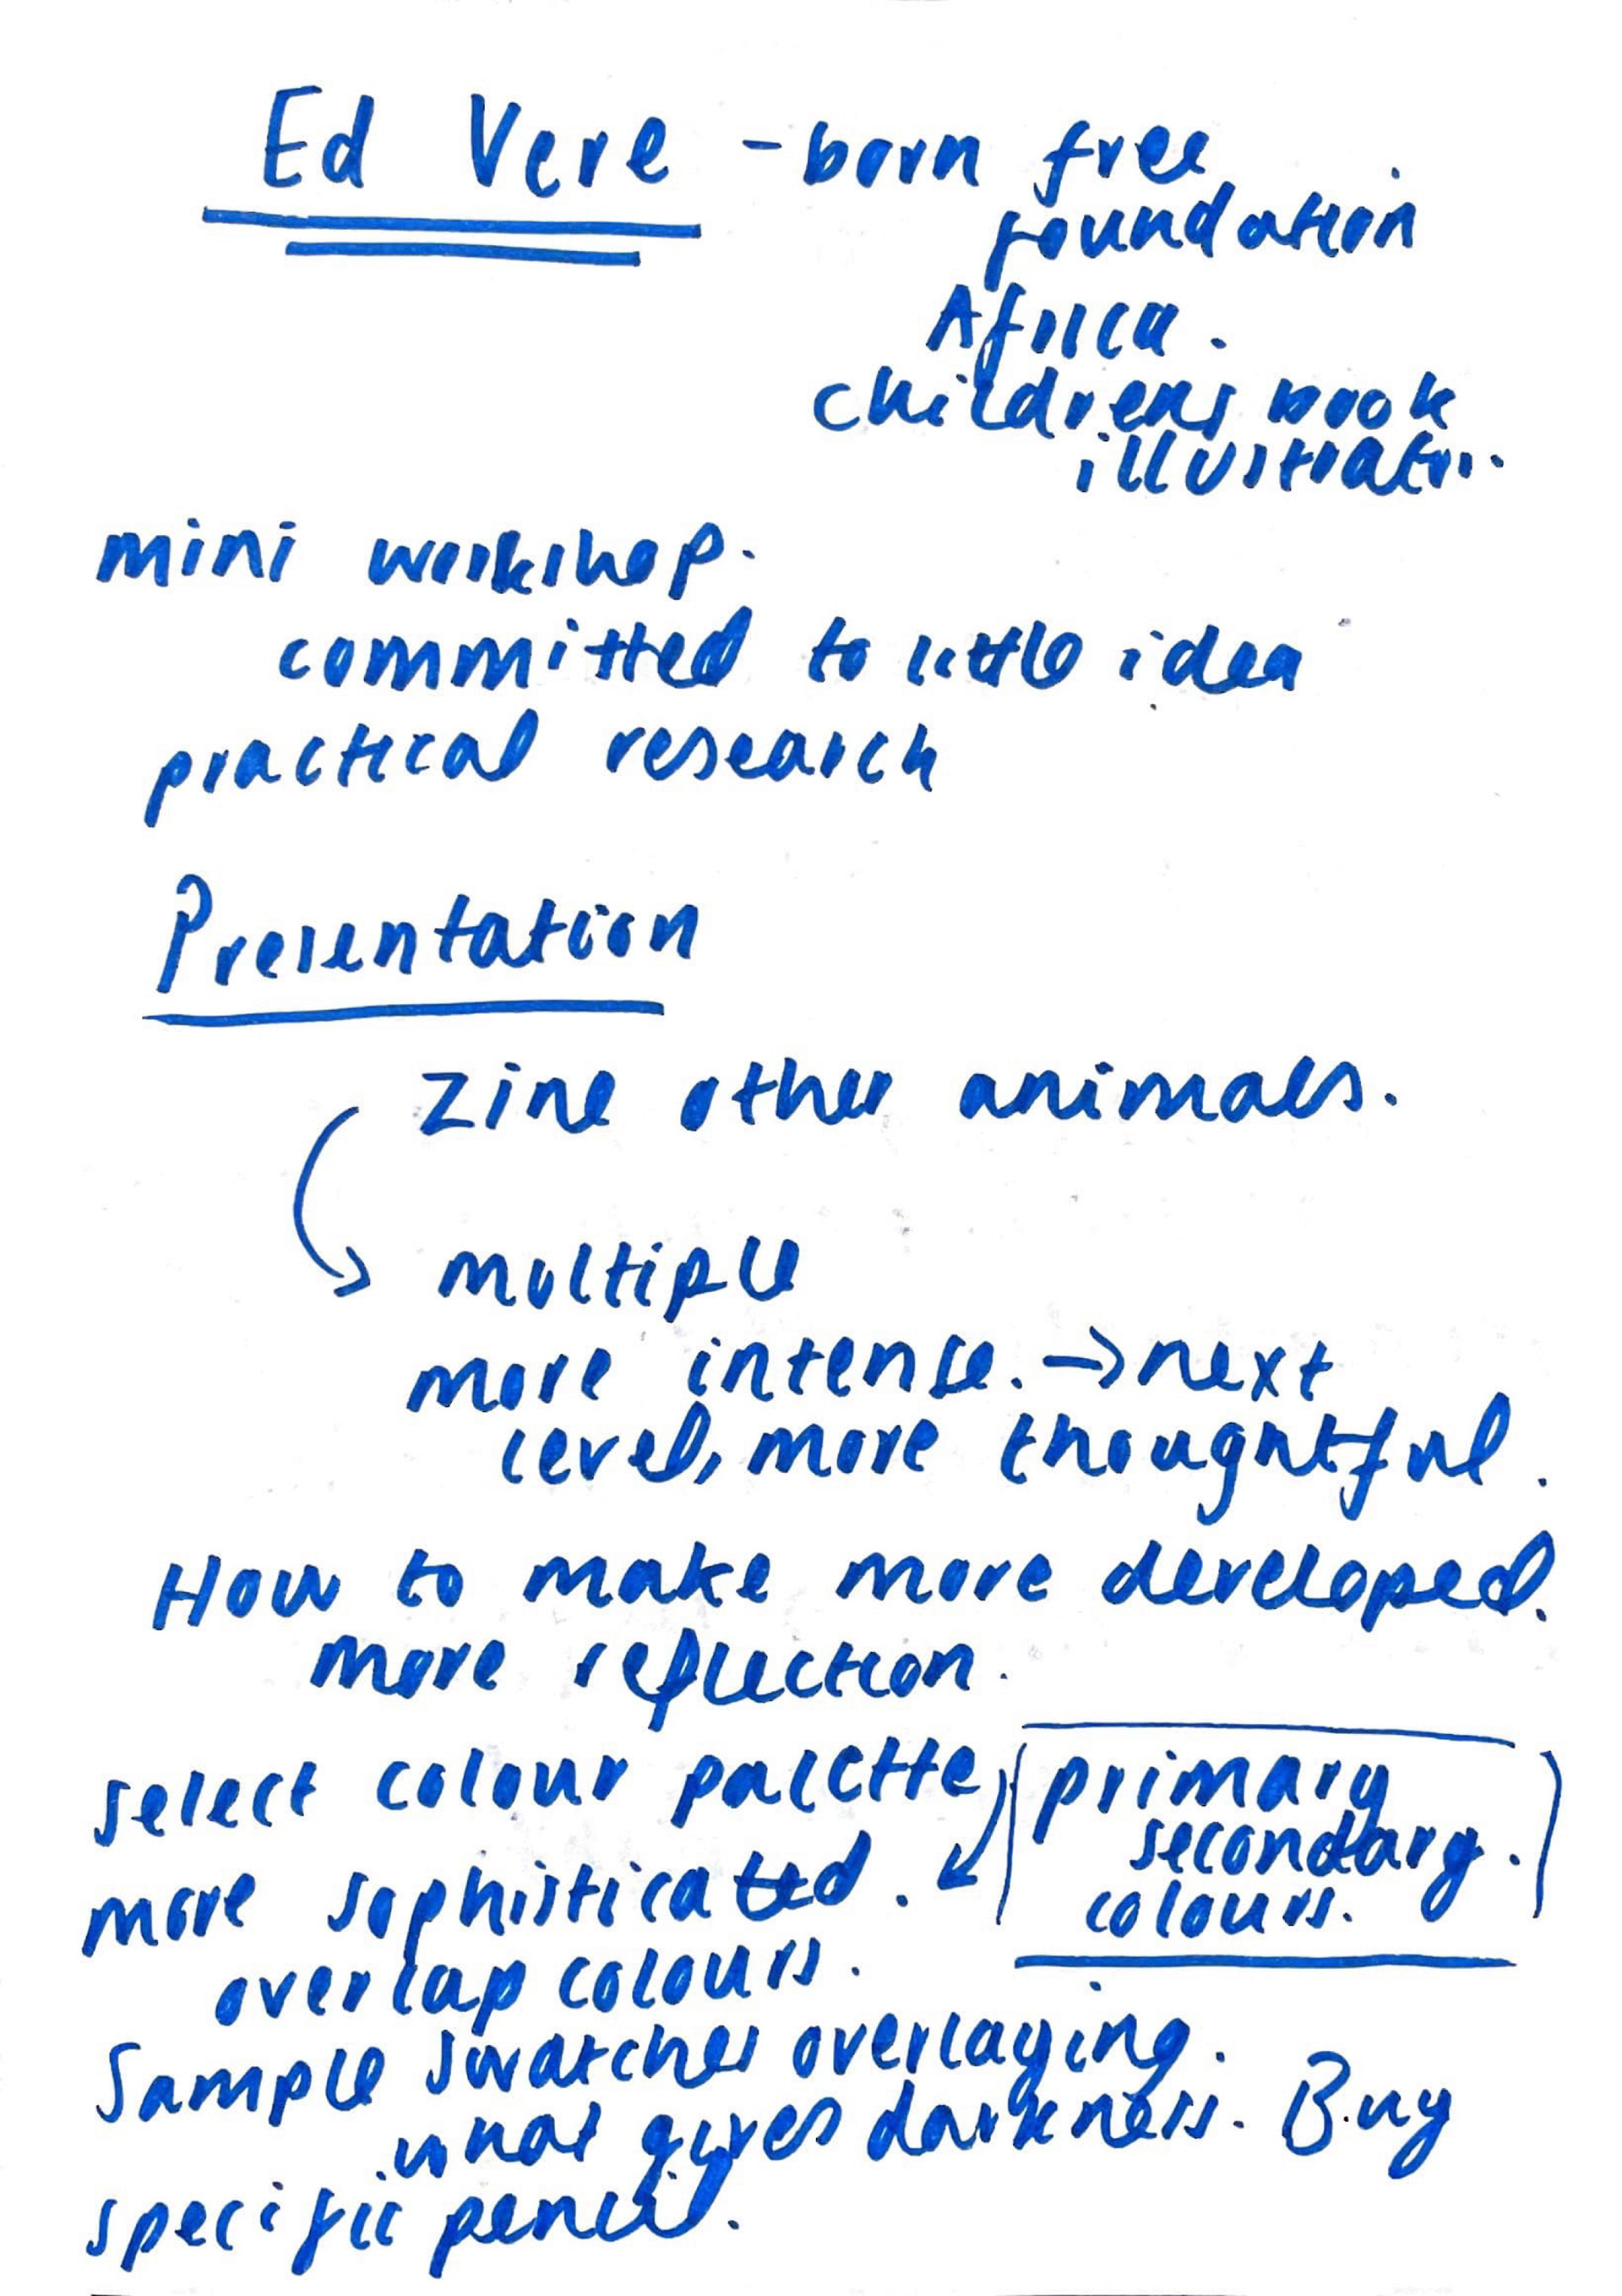 Ed Vere - born free
foundation
Africa.
childrens book
illustrator.
mini workshop.
committed to little idea
practical research
Presentation
zine other animals.
multiple
more intense. → next
level, more thoughtful.
How to make more developed.
more reflection.
select colour palette
primary
secondary.
colours.
more sophisticated.
overlap colours.
Sample swatches overlaying.
what gives darkness. Buy
specific pencil.